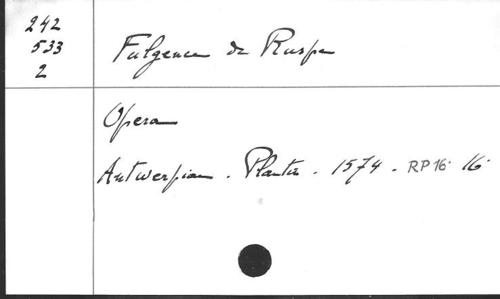 242
533
2
Fulgence de Ruspe
Opera
Antwerpiae. Plantin. 1574. RP16° 16°